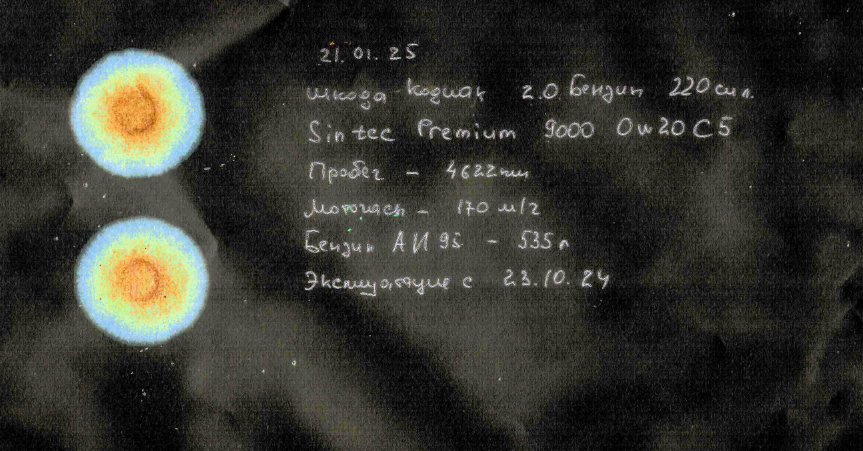 21.01.25
шкода Кодиак 2.0 Бензин 220 сил.
Sintec Premium 9000 0w20 C5
Пробег - 4622км
Моточасы - 170 м/ч
Бензин АИ 95 - 535л
Эксплуатация с 23.10.24